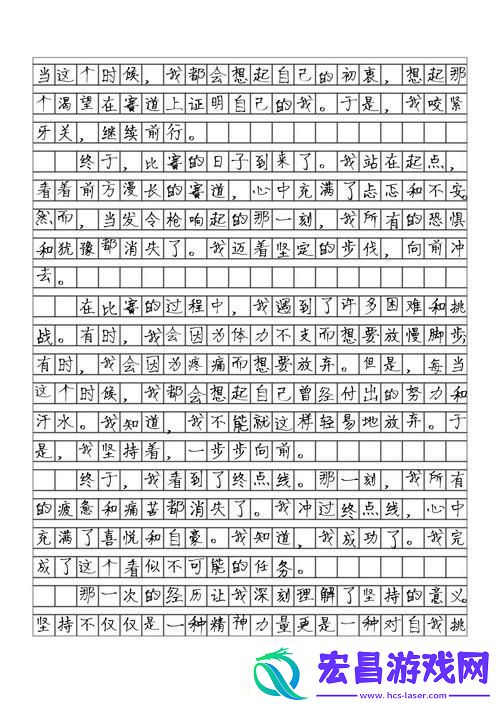 当这个时候，我都会想起自己的初衷，想起那
个渴望在赛道上证明自己的我。于是，我咬紧
牙关，继续前行。
终于，比赛的日子到来了。我站在起点，
看着前方漫长的赛道，心中充满了忐忑和不安。
然而，当发令枪响起的那一刻，我所有的恐惧
和犹豫都消失了。我迈着坚定的步伐，向前冲
去。
在比赛的过程中，我遇到了许多困难和挑
战。有时，我会因为体力不支而想要放慢脚步；
有时，我会因为疼痛而想要放弃。但是，每当
这个时候，我都会想起自己曾经付出的努力和
汗水。我知道，我不能就这样轻易地放弃。于
是，我坚持着，一步步向前。
终于，我看到了终点线。那一刻，我所有
的疲惫和痛苦都消失了。我冲过终点线，心中
充满了喜悦和自豪。我知道，我成功了。我完
成了这个看似不可能的任务。
那一次的经历让我深刻理解了坚持的意义。
坚持不仅仅是一种精神力量更是一种对自我挑
宏昌游戏网
www.hcs-laser.com